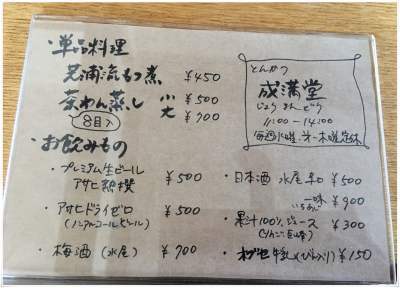 ・単品料理
芝浦流もつ煮 ¥450
茶わん蒸し 小 ¥500
8目入 大 ¥700
とんかつ
成満堂
じょうまんどう
11:00-14:00
毎週火曜・第一木曜定休
・お飲みもの
・プレミアム生ビール
アサヒ熟撰 ¥500
・アサヒドライゼロ
(ノンアルコールビール) ¥500
・梅酒(水尾) ¥700
・日本酒 水尾 辛口 ¥500
一味 ¥900
・果汁100%ジュース ¥300
・オブセ牛乳(びん入り) ¥150